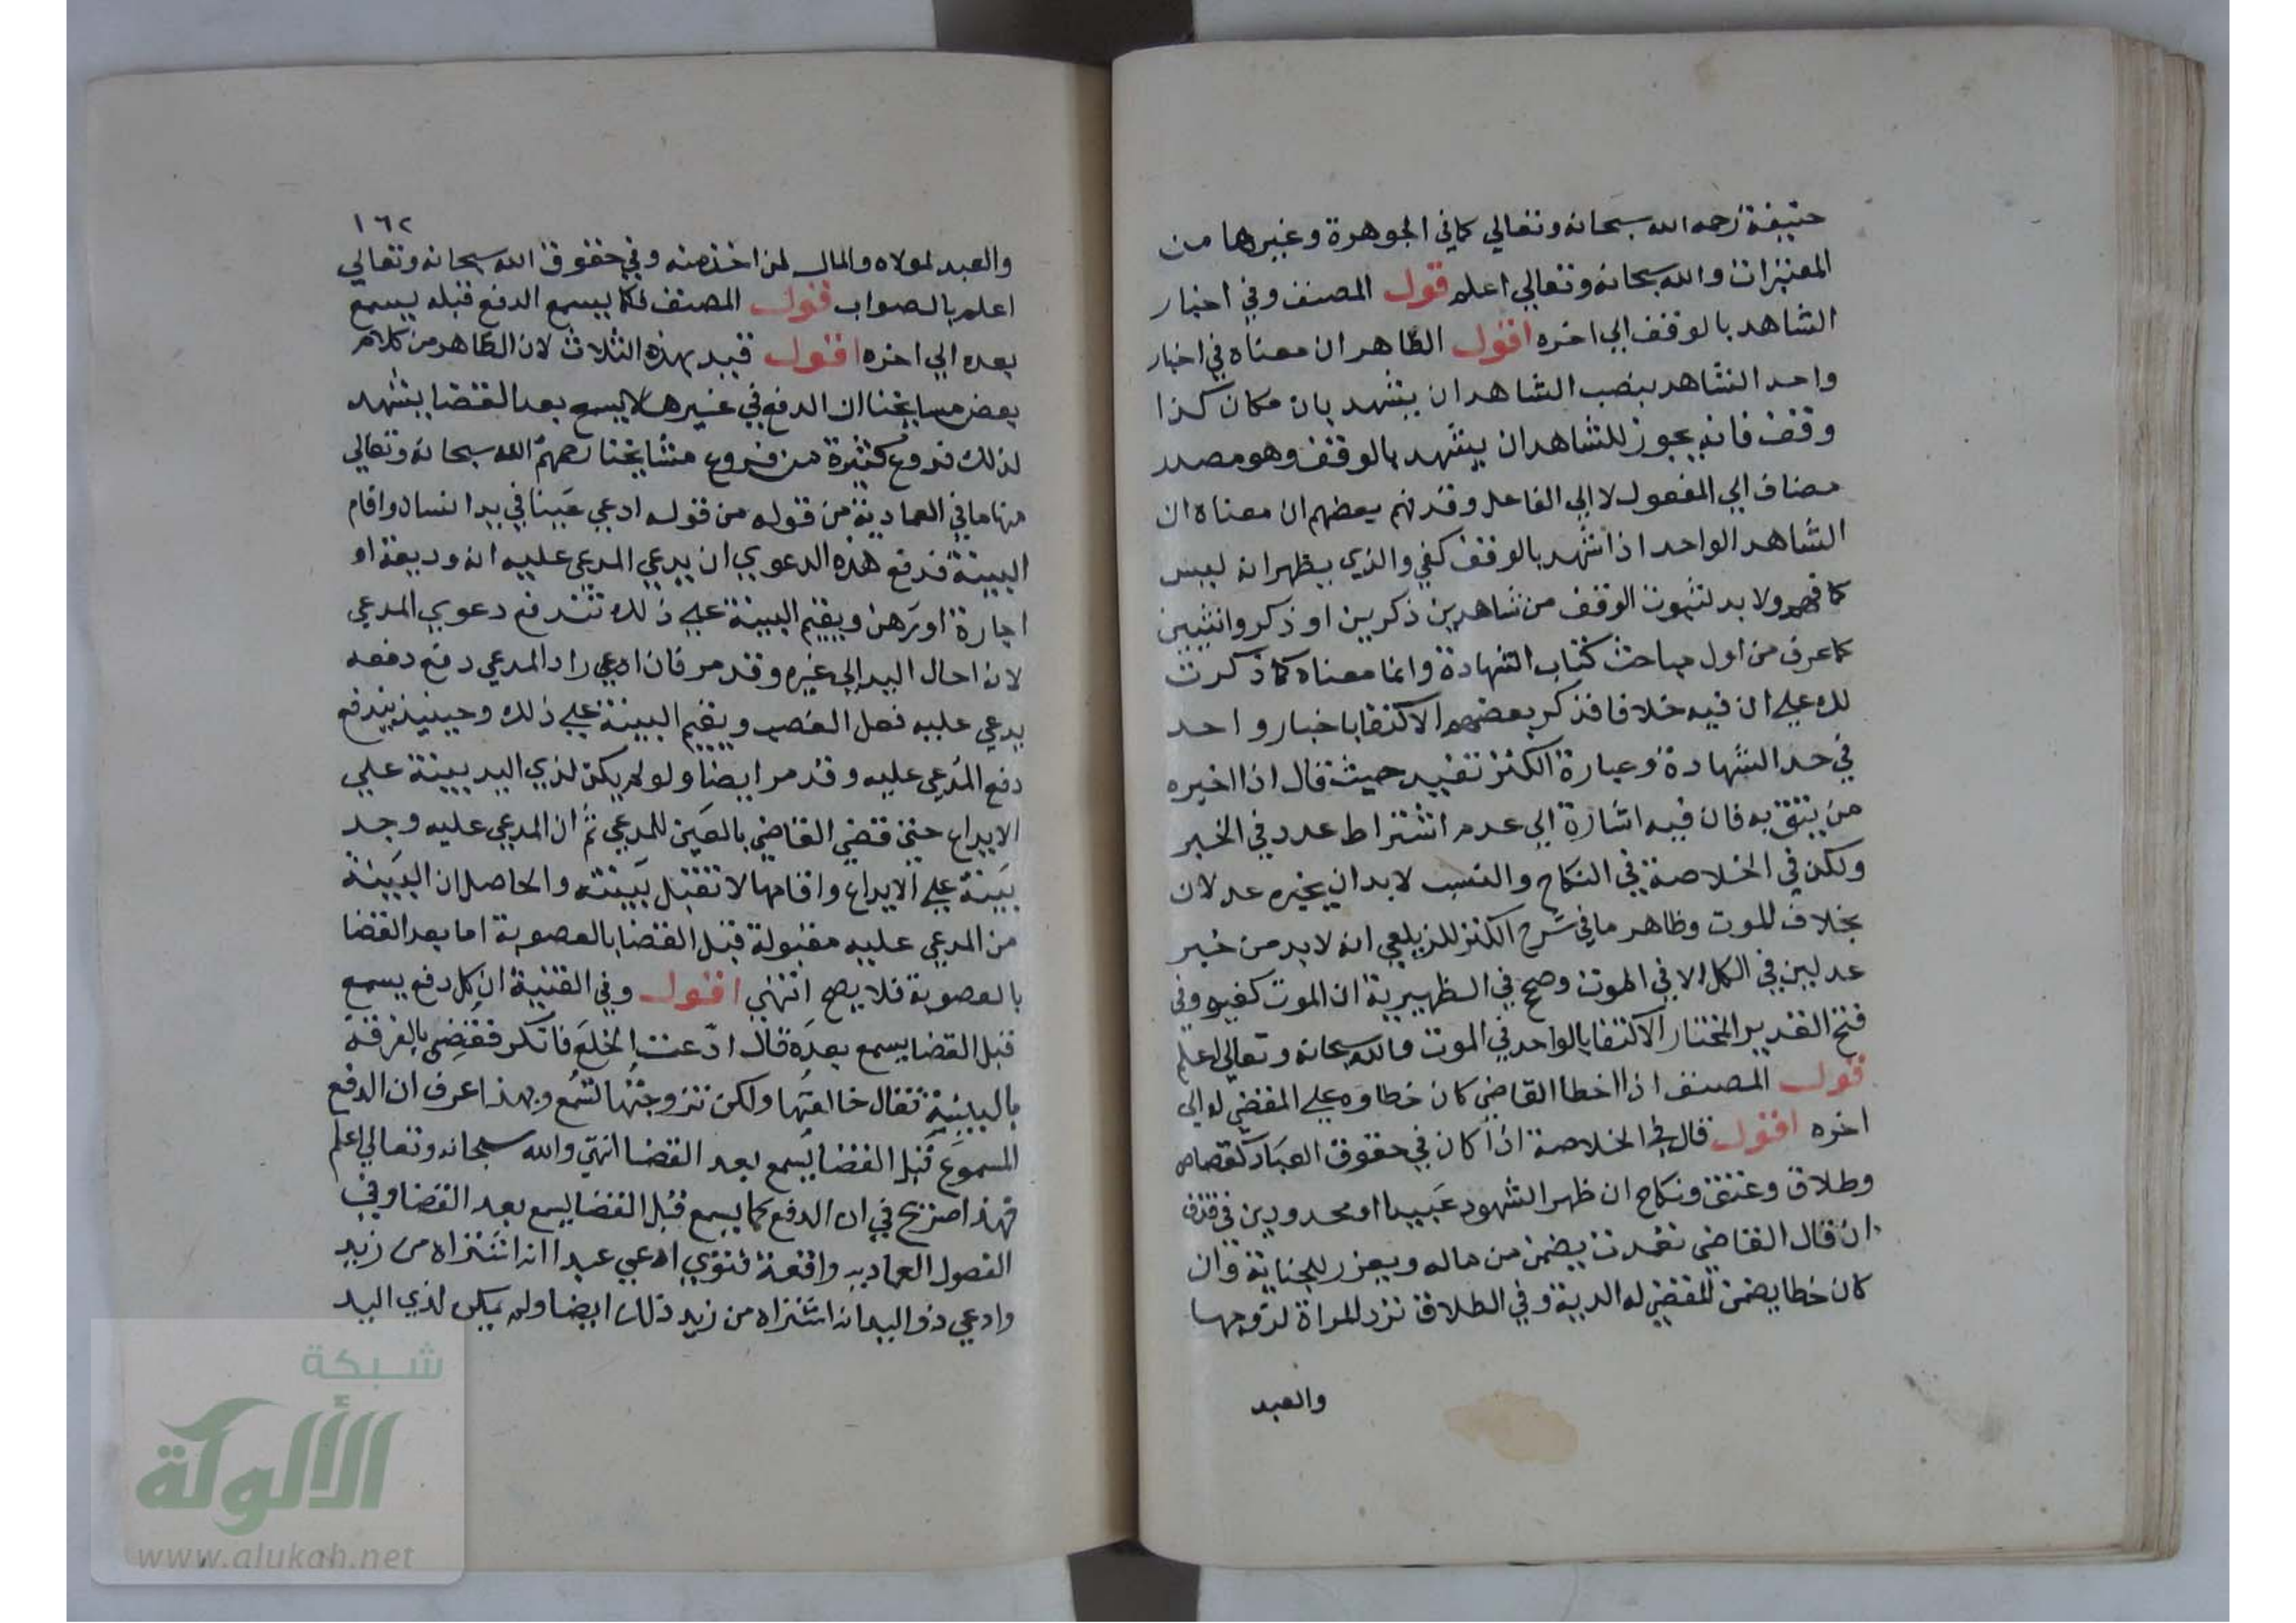 حنيفة رحمه الله سبحانه وتعالي كما في الجوهرة وغيرها من
المعتبرات والله سبحانه وتعالي اعلم قول المصنف وفي اخبار
الشاهد بالوقف الي اخره اقول الظاهر ان معناه في اخبار
واحد الشاهد بنصب الشاهد ان يشهد بان مكان كذا
وقف فانه يجوز للشاهد ان يشهد بالوقف وهو مصدر
مضاف الي المفعول لا الي الفاعل وقد فهم بعضهم ان معناه ان
الشاهد الواحد اذا شهد بالوقف كفي والذي يظهر انه ليس
كما فهم ولا بد لثبوت الوقف من شاهدين ذكرين او ذكر وانثيين
كما عرف من اول مباحث كتاب الشهادة وانما معناه كما ذكرت
لك علي ان فيه خلافا فذكر بعضهم الاكتفا باخبار واحد
في حد الشهادة وعبارة الكنز تفيد حيث قال اذا اخبره
من يثق به فان فيه اشارة الي عدم اشتراط عدد في الخبر
ولكن في الخلاصة في النكاح والنسب لا بد ان يخبره عدلان
بخلاف الموت وظاهر ما في شرح الكنز للزيلعي انه لا بد من خبر
عدلين في الكل الا في الموت وصحح في الظهيرية ان الموت كغيره وفي
فتح القدير المختار الاكتفا بالواحد في الموت والله سبحانه وتعالي اعلم
قول المصنف اذا اخطا القاضي كان خطاوه علي المقضي له الي
اخره اقول قال في الخلاصة اذا كان في حقوق العباد كقصاص
وطلاق وعتق ونكاح ان ظهر الشهود عبيدا او محدودين في قذف
ان قال القاضي تعمدت يضمن من ماله ويعزر للجناية وان
كان خطا يضمن المقضي له الدية وفي الطلاق ترد المراة لزوجها
والعبد
١٦٢
والعبد لمولاه والمال لمن اخذ منه وفي حقوق الله سبحانه وتعالي
اعلم بالصواب قول المصنف كما يسمع الدفع قبله يسمع
بعده الي اخره اقول قيد بهذه الثلاث لان الظاهر من كلام
بعض مسايخنا ان الدفع في غيرها لا يسمع بعد القضا يشهد
لذلك فروع كثيرة من فروع مشايخنا رحمهم الله سبحانه وتعالي
منها ما في العمادية من قوله من قوله ادعي عينا في يد انسان واقام
البينة فدفع هذه الدعوي ان يدعي المدعي عليه انه وديعة او
اجارة او رهن ويقيم البينة علي ذلك تندفع دعوي المدعي
لانه احال اليد الي غيره وقد مر فان ادعي راد المدعي دفع دفعه
يدعي عليه فعل الغصب ويقيم البينة علي ذلك وحينيذ يندفع
دفع المدعي عليه وقد مر ايضا ولو لم يكن لذي اليد بينة علي
الايداع حتي قضي القاضي بالعين للمدعي ثم ان المدعي عليه وجد
بينة علي الايداع واقامها لا تقبل بينته والحاصل ان البينة
من المدعي عليه مقبولة قبل القضا بالعصوبة اما بعد القضا
بالعصوبة فلا يصح انتهي اقول وفي القنية ان كل دفع يسمع
قبل القضا يسمع بعده قال ادعت الخلع فانكر فقضي بالفرقة
بالبينة فقال خالعتها ولكن تزوجتها تسمع وبهذا عرف ان الدفع
المسموع قبل القضا يسمع بعد القضا انتهي والله سبحانه وتعالي اعلم
فهذا صريح في ان الدفع كما يسمع قبل القضا يسمع بعد القضا وفي
الفصول العماديه واقعة فتوي ادعي عبدا انه اشتراه من زيد
وادعي ذو اليد انه اشتراه من زيد ذلك ايضا ولم يكن لذي اليد
شبكة
الألوكة
www.alukah.net